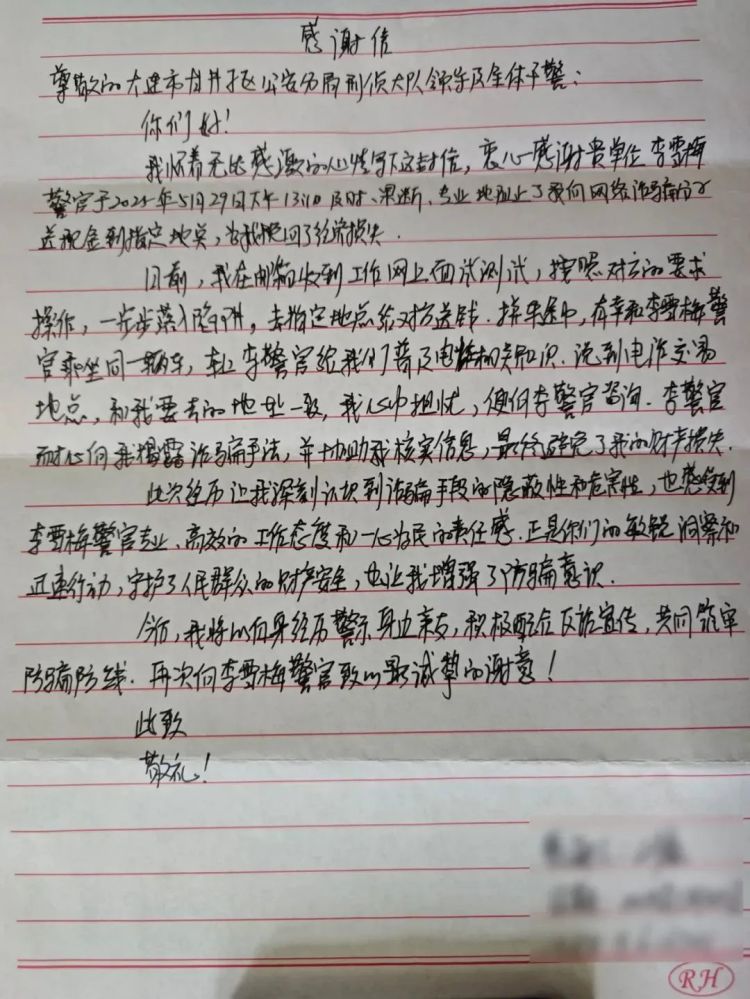 感谢信
尊敬的大连市甘井子区公安分局刑侦大队领导及全体干警：
你们好！
我怀着无比感激的心情写下这封信，衷心感谢贵单位李雪梅
警官于2025年5月29日下午13:10及时、果断、专业地阻止了我向网络诈骗分子
送现金到指定地点，为我挽回了经济损失．
日前，我在邮箱收到工作网上面试测试，按照对方的要求
操作，一步步落入陷阱，去指定地点给对方送钱．拼车途中，有幸和李雪梅警
官乘坐同一辆车，车上李警官给我们普及电诈相关知识．说到电诈交易
地点，和我要去的地址一致，我心中担忧，便向李警官咨询．李警官
耐心向我揭露诈骗手法，并协助我核实信息，最终避免了我的财产损失．
此次经历让我深刻认识到诈骗手段的隐蔽性和危害性，也感受到
李雪梅警官专业、高效的工作态度和一心为民的责任感．正是你们的敏锐洞察和
迅速行动，守护了人民群众的财产安全，也让我增强了防骗意识．
今后，我将以自身经历警示身边亲友，积极配合反诈宣传，共同筑牢
防骗防线．再次向李雪梅警官致以最诚挚的谢意！
此致
敬礼！
RH